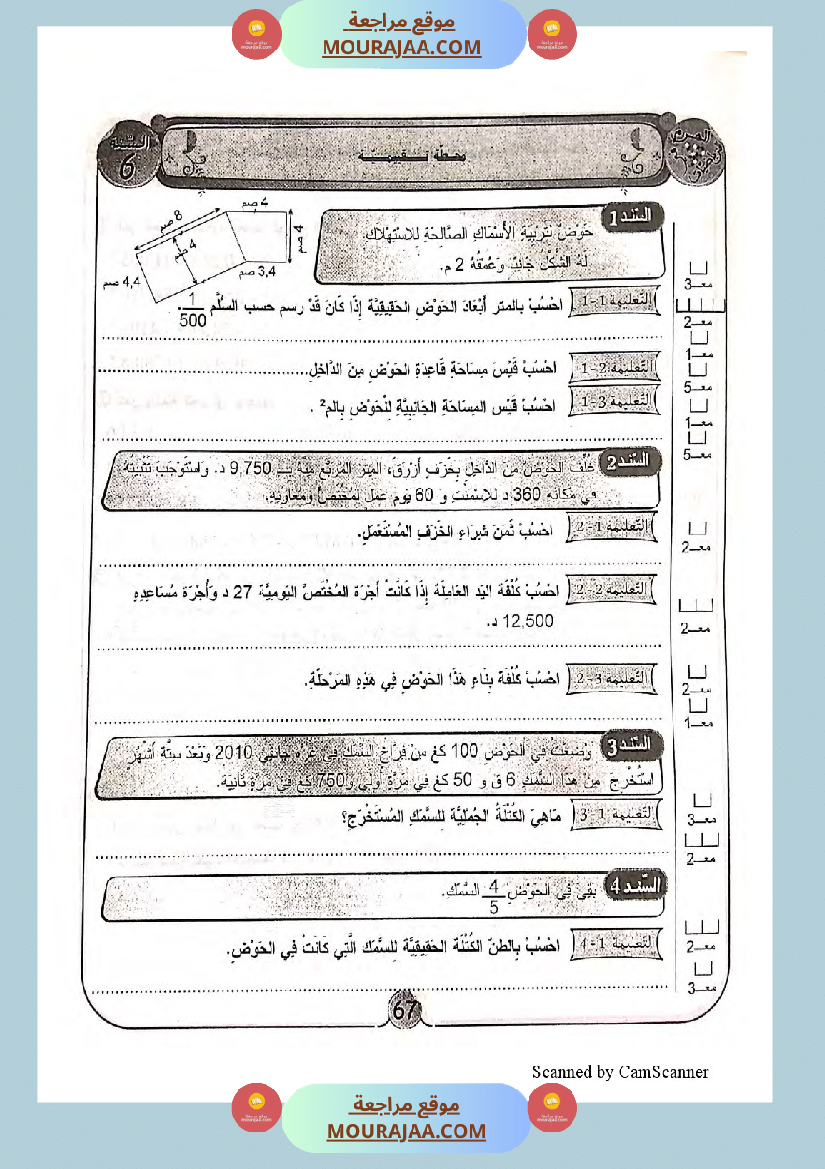 موقع مراجعة
MOURAJAA.COM
السنة 6
محطة تقييمية
السند 1
حَوْضٌ لِتَرْبِيَةِ الأَسْمَاكِ الصَّالِحَةِ لِلاسْتِهْلاكِ.
لَهُ الشَّكْلُ جَانِبَهُ وَعُمْقُهُ 2 م.
4 صم
8 صم
4 صم
4 صم
3,4 صم
4,4 صم
التعليمة 1-1 احْسُبْ بالمتر أَبْعَادَ الحَوْضِ الحَقِيقِيَّة إِذَا كَانَ قَدْ رسم حسب السُلَّم 1/500.
التعليمة 2-1 احْسُبْ قَيْسَ مِسَاحَةِ قَاعِدَةِ الحَوْضِ مِنَ الدَّاخِلِ
التعليمة 3-1 احْسُبْ قَيْسَ المِسَاحَةِ الجَانِبِيَّةِ لِلْحَوْضِ بِالم².
السند 2
غُلِّفَ الحَوْضُ مِنَ الدَّاخِلِ بِخَزَفٍ أَزْرَقَ، المِتر المُرَبَّع مِنْهُ بِـ 9,750 د. وَاسْتَوْجَبَ تَثْبِيتُهُ
فِي مَكَانِهِ 360 د لِلاِسْمَنْتِ و 60 يَوْمَ عَمَلٍ لِمُخْتَصٍّ وَمُعَاوِنِهِ.
التعليمة 1-2 احْسُبْ ثَمَنَ شِرَاءِ الخَزَفِ المُسْتَعْمَلِ.
التعليمة 2-2 احْسُبْ كُلْفَةَ اليَد العَامِلَة إِذَا كَانَتْ أُجْرَة المُخْتَصِّ اليَوْمِيَّة 27 د وَأُجْرَة مُسَاعِدِهِ
12,500 د.
التعليمة 3-2 احْسُبْ كُلْفَةَ بِنَاءِ هَذَا الحَوْضِ فِي هَذِهِ المَرْحَلَةِ.
السند 3
وُضِعَتْ فِي الحَوْضِ 100 كغ مِنْ فِرَاخِ السَّمَكِ فِي غُرَّةِ جَانْفِي 2010 وَبَعْدَ سِتَّةِ أَشْهُرٍ
اسْتُخْرِجَ مِنْ هَذَا السَّمَكِ 6 ق و 50 كغ فِي مَرَّةٍ أُولَى و750 كغ فِي مَرَّةٍ ثَانِيَةٍ.
التعليمة 1-3 مَاهِيَ الكُتْلَةُ الجُمْلِيَّةُ لِلسَّمَكِ المُسْتَخْرَجِ؟
السند 4
بَقِيَ فِي الحَوْضِ 4/5 السَّمَكِ.
التعليمة 1-4 احْسُبْ بِالطنّ الكُتْلَةَ الحَقِيقِيَّةَ لِلسَّمَكِ الَّتِي كَانَتْ فِي الحَوْضِ.
معـ3
معـ2
معـ1
معـ5
معـ1
معـ5
معـ2
معـ2
معـ2
معـ1
معـ3
معـ2
معـ2
معـ3
67
Scanned by CamScanner
موقع مراجعة
MOURAJAA.COM